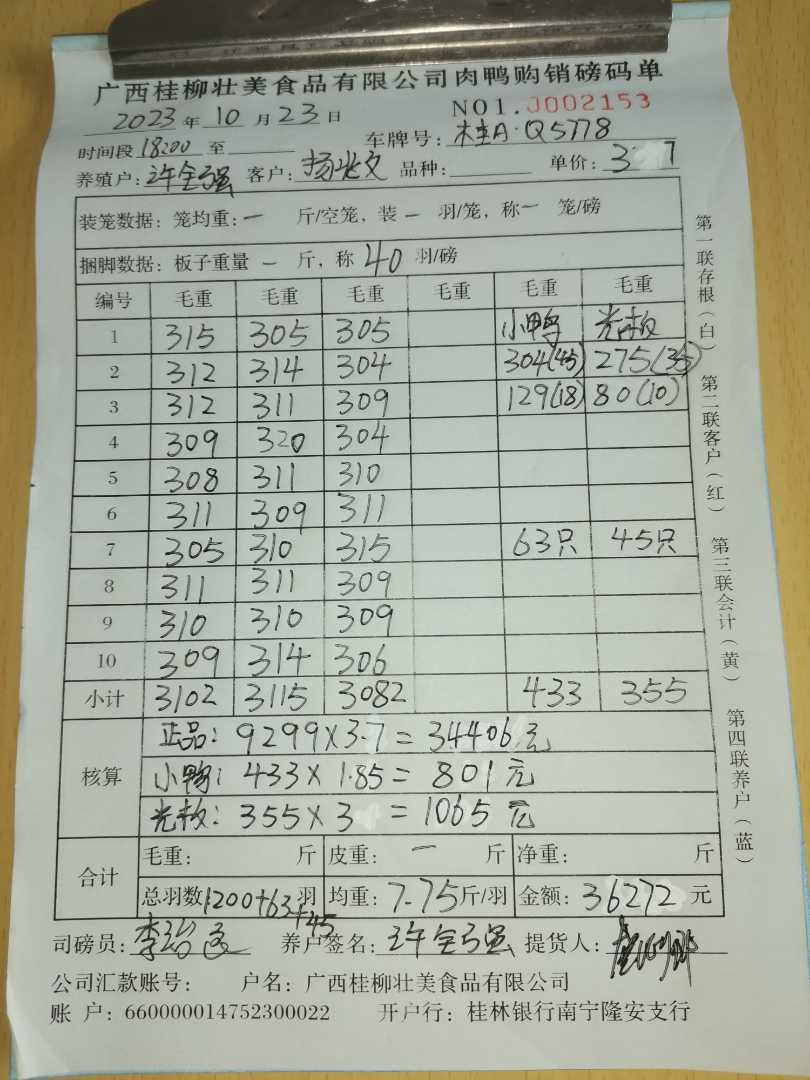 广西桂柳壮美食品有限公司肉鸭购销磅码单
2023年10月23日 NO1.J002153
时间段18:00至 车牌号:桂A·Q5778
养殖户:许全强 客户:杨兆文 品种: 单价:3.7
装笼数据:笼均重:一 斤/空笼,装一 羽/笼,称一 笼/磅
捆脚数据:板子重量 一 斤,称 40 羽/磅
编号 毛重 毛重 毛重 毛重 毛重 毛重
1 315 305 305 小鸭
2 312 314 304 304(45) 275(35)
3 312 311 309 129(18) 80(10)
4 309 320 304
5 308 311 310
6 311 309 311
7 305 310 315 63只 45只
8 311 311 309
9 310 310 309
10 309 314 306
小计 3102 3115 3082 433 355
核算
正品:9299×3.7=34406元
小鸭:433×1.85=801元
355×3=1065元
合计
毛重: 斤 皮重:一 斤 净重: 斤
总羽数1200+63+45羽 均重:7.75斤/羽 金额:36272元
司磅员: 养户签名:许全强 提货人:
公司汇款账号: 户名:广西桂柳壮美食品有限公司
账 户:660000014752300022 开户行:桂林银行南宁隆安支行
第一联存根(白) 第二联客户(红) 第三联会计(黄) 第四联养户(蓝)